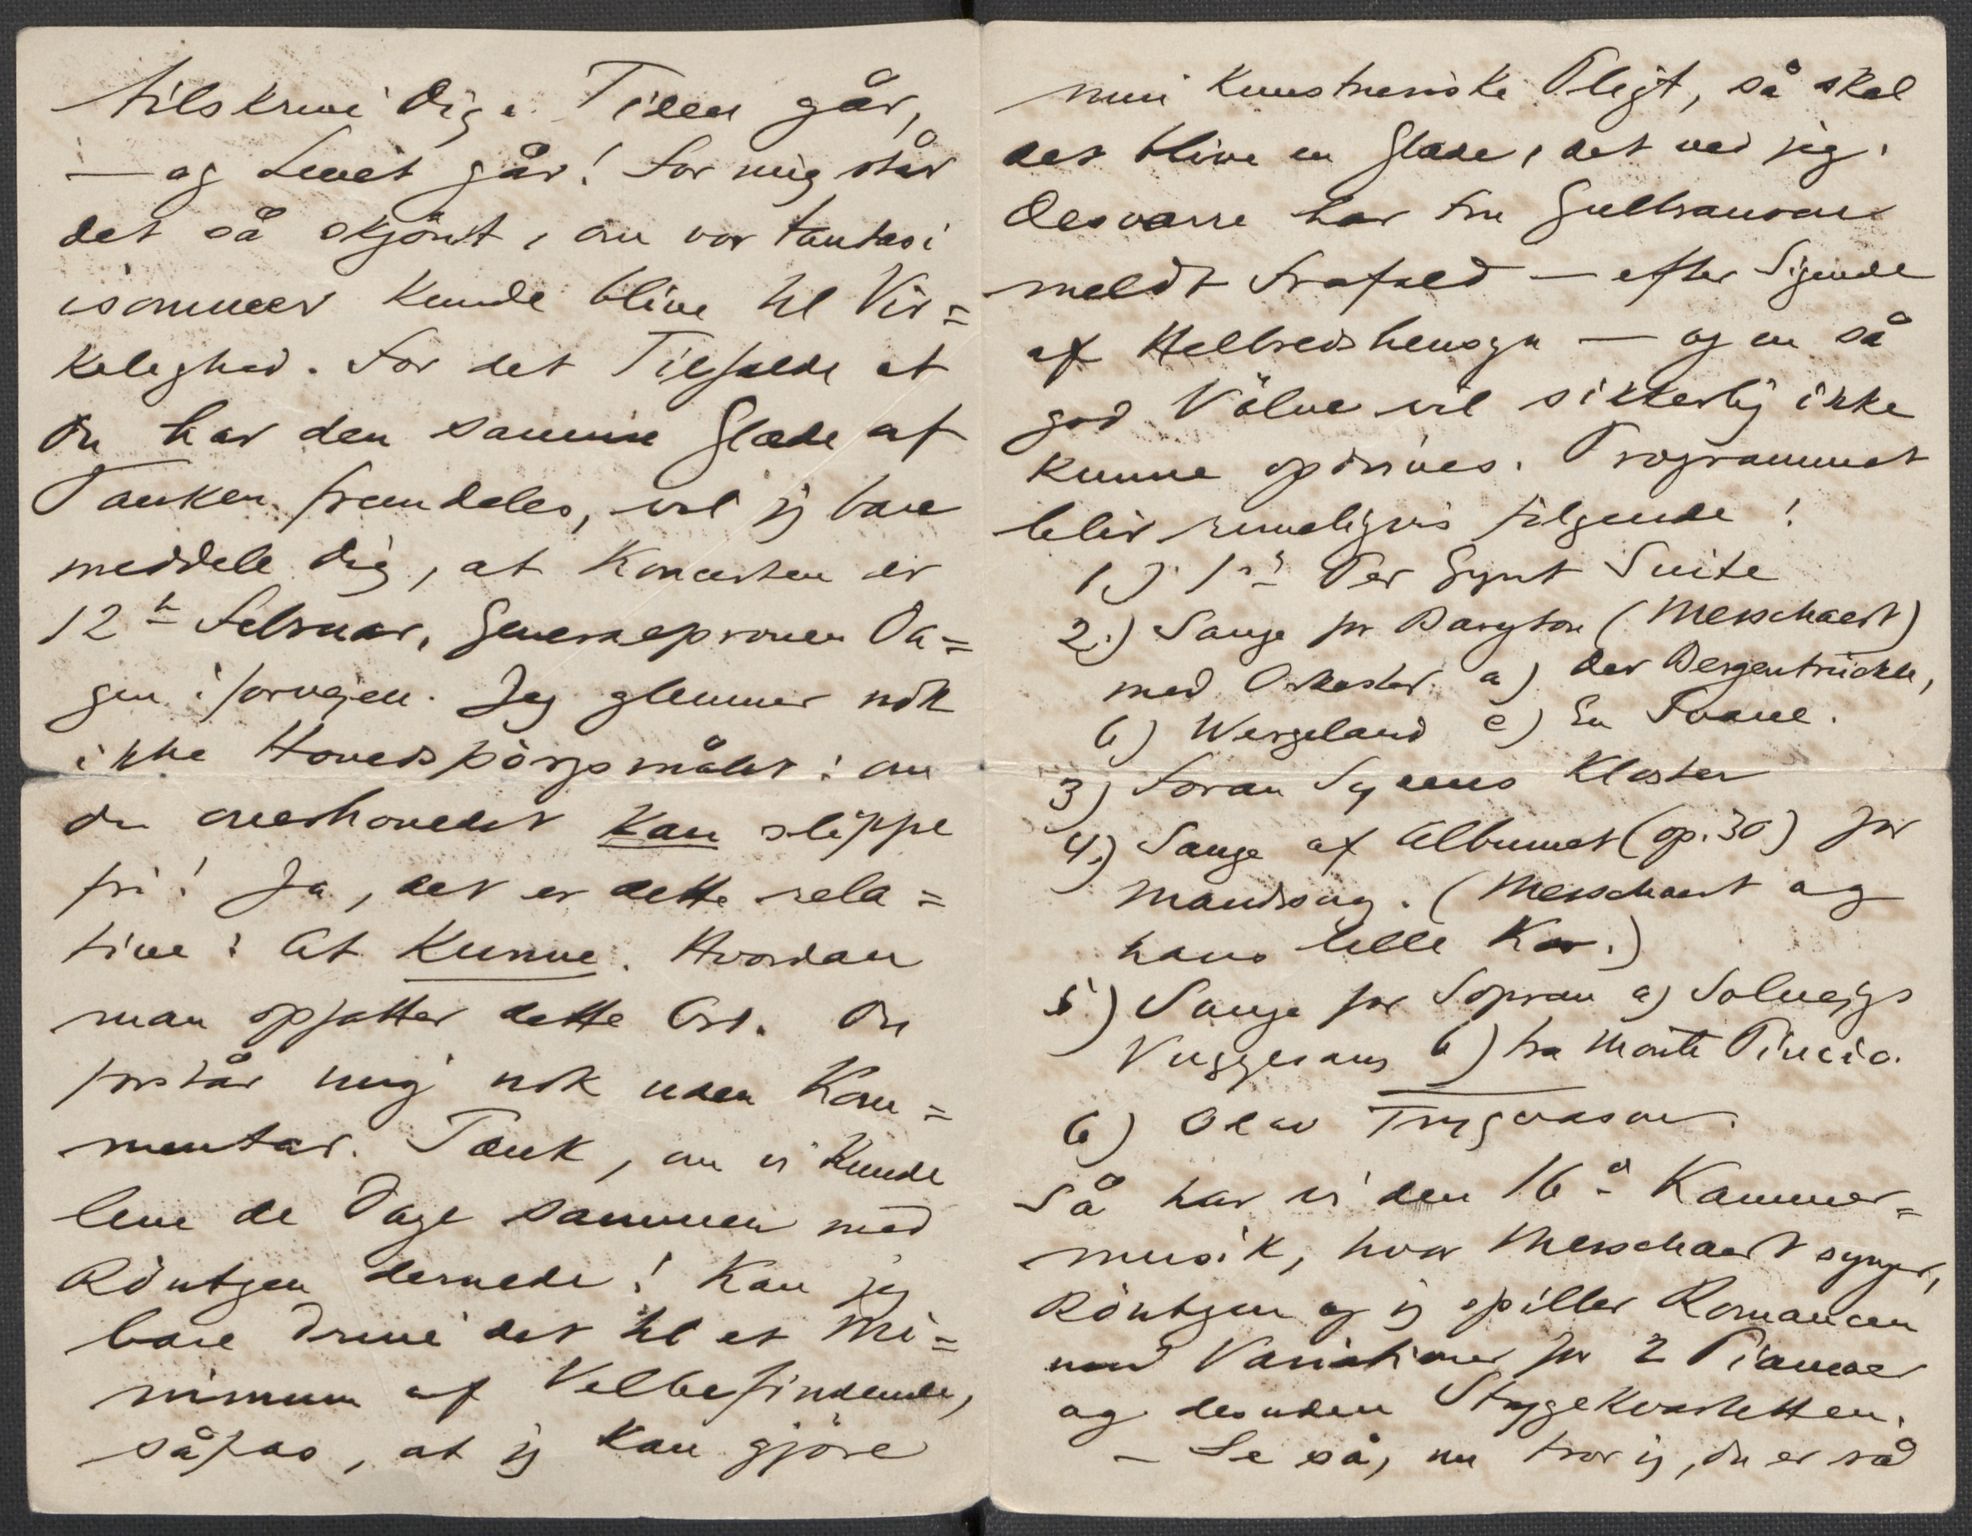 tilskrive Dig. Tiden går,
— og Livet går! For mig står
det så skjönt, om vor Fantasi
isommer kunde blive til Vir=
kelighed. For det Tilfælde at
Du har den samme Glæde af
Tanken fremdeles, vil jeg bare
meddele Dig, at Koncerten er
12te Februar, Generalprøven Da=
gen iforvejen. Jeg glemmer nok
ikke Hovedspörgsmålet: om
Du overhovedet kan slippe
fri! Ja, det er dette rela=
tive: At kunne. Hvordan
man opfatter dette Ord. Du
forstår mig nok uden Kom=
mentar. Tænk, om vi kunde
leve de Dage sammen med
Röntgen dernede! Kan jeg
bare drive det til et Mi=
nimum af Velbefindende,
såpas, at jeg kan gjöre
min kunstneriske Pligt, så skal
det blive en Glæde, det ved jeg.
Desværre har Fru Gulbranson
meldt Frafald — efter Sigende
af Helbredshensyn — og en så
god Völve vil sikkerlig ikke
kunne opdrives. Programmet
blir rimeligvis fölgende:
1.) 1ste Per Gynt Suite
2.) Sange for Baryton (Messchaert)
med Orkester. a) Der Bergentrückte,
b) Wergeland c) En Svane.
3) Foran Sydens Kloster
4.) Sange af Albumet (op. 30) for
Mandssang. (Messchaert og
hans lille Kor.)
5) Sange for Sopran a) Solvejgs
Vuggesang b) Fra Monte Pincio.
6) Olav Trygvason.
Så har vi den 16de Kammer=
musik, hvor Messchaert synger,
Röntgen og jeg spiller Romancen
med Variationer for 2 Pianoer
og desuden Strygekvartetten.
— Se så, nu tror jeg, Du er råd